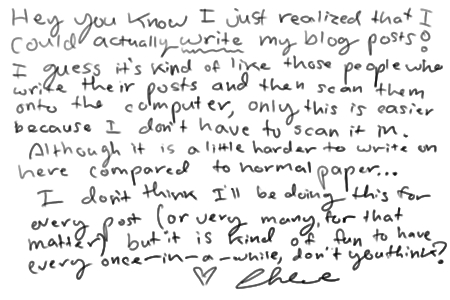 Hey you know I just realized that I
could actually write my blog posts!
I guess it's kind of like those people who
write their posts and then scan them
onto the computer, only this is easier
because I don't have to scan it in.
Although it is a little harder to write on
here compared to normal paper...
I don't think I'll be doing this for
every post (or very many, for that
matter) but it is kind of fun to have
every once-in-a-while, don't you think?